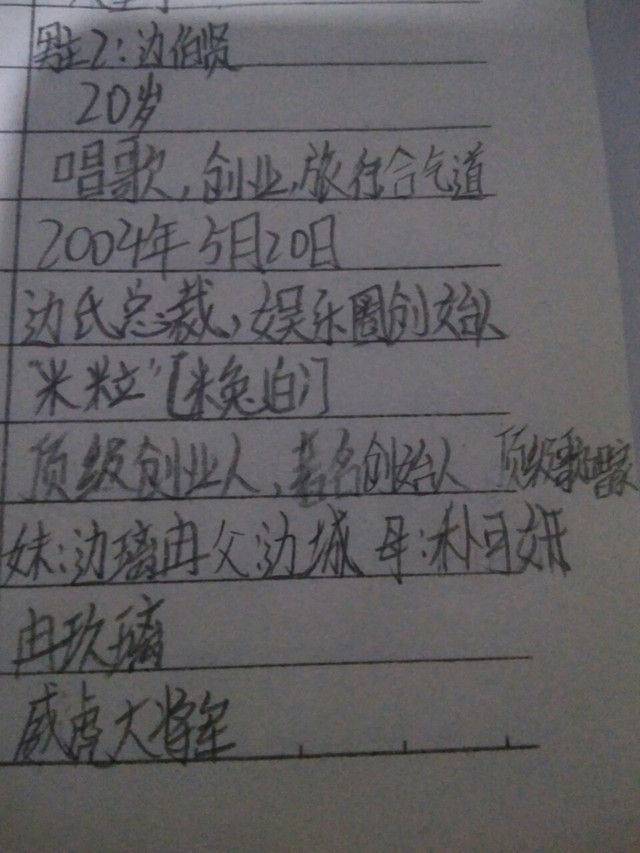 男主2:边伯贤
20岁
唱歌,创业,旅行合气道
2004年5月20日
边氏总裁,娱乐圈创始人
"米粒"[米兔]
顶级创业人,著名创始人 顶级歌唱家
妹:边璃冉 父:边城 母:朴可妍
冉玖璃
威虎大将军